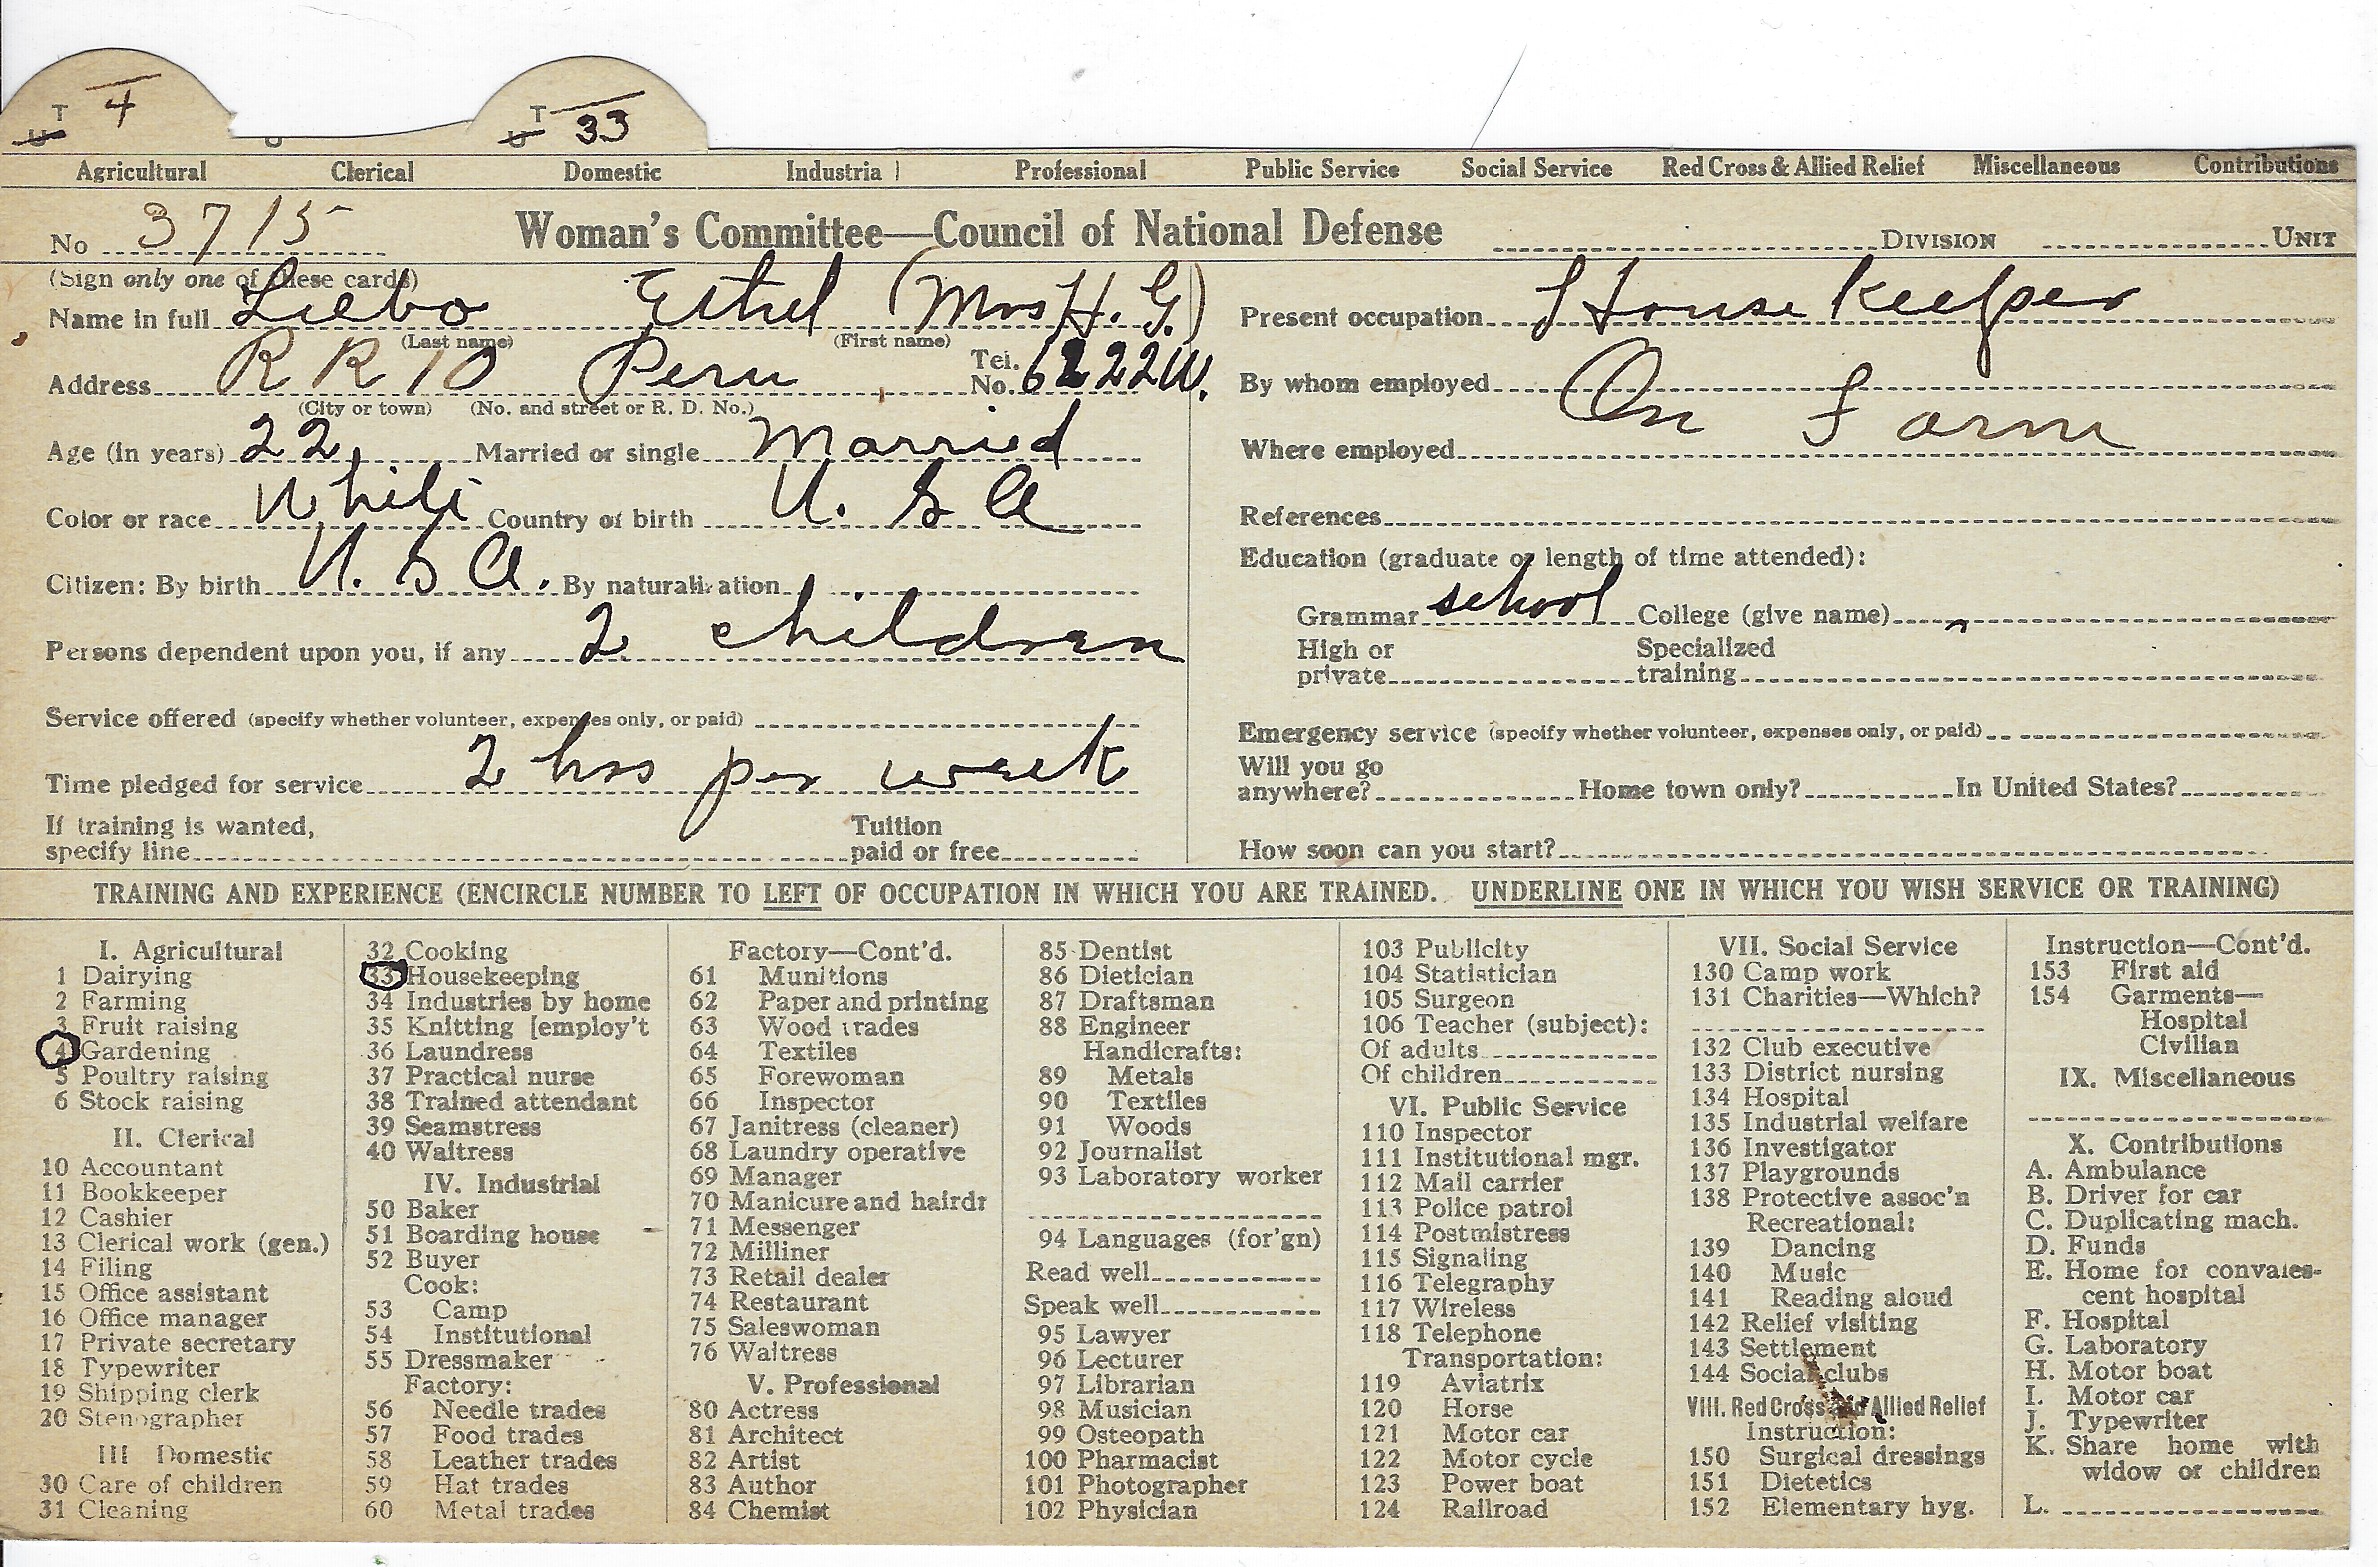 T 4 T 33
U U
Agricultural Clerical Domestic Industrial Professional Public Service Social Service Red Cross & Allied Relief Miscellaneous Contributions
No 3715 Woman's Committee—Council of National Defense DIVISION UNIT
(Sign only one of these cards)
Name in full Liebo Ethel (Mrs H. G.)
(Last name) (First name)
Address R R 10 Peru Tel. No. 6222W.
(City or town) (No. and street or R. D. No.)
Age (in years) 22 Married or single Married
Color or race White Country of birth U. S A
Citizen: By birth U. S A. By naturalization
Persons dependent upon you, if any 2 children
Service offered (specify whether volunteer, expenses only, or paid)
Time pledged for service 2 hrs per week
If training is wanted, specify line Tuition paid or free
Present occupation House Keeper
By whom employed On Farm
Where employed
References
Education (graduate or length of time attended):
Grammar school College (give name)
High or private Specialized training
Emergency service (specify whether volunteer, expenses only, or paid)
Will you go anywhere? Home town only? In United States?
How soon can you start?
TRAINING AND EXPERIENCE (ENCIRCLE NUMBER TO LEFT OF OCCUPATION IN WHICH YOU ARE TRAINED. UNDERLINE ONE IN WHICH YOU WISH SERVICE OR TRAINING)
I. Agricultural
1 Dairying
2 Farming
3 Fruit raising
4 Gardening
5 Poultry raising
6 Stock raising
II. Clerical
10 Accountant
11 Bookkeeper
12 Cashier
13 Clerical work (gen.)
14 Filing
15 Office assistant
16 Office manager
17 Private secretary
18 Typewriter
19 Shipping clerk
20 Stenographer
III Domestic
30 Care of children
31 Cleaning
32 Cooking
33 Housekeeping
34 Industries by home
35 Knitting [employ't
36 Laundress
37 Practical nurse
38 Trained attendant
39 Seamstress
40 Waitress
IV. Industrial
50 Baker
51 Boarding house
52 Buyer
Cook:
53 Camp
54 Institutional
55 Dressmaker
Factory:
56 Needle trades
57 Food trades
58 Leather trades
59 Hat trades
60 Metal trades
Factory—Cont'd.
61 Munitions
62 Paper and printing
63 Wood trades
64 Textiles
65 Forewoman
66 Inspector
67 Janitress (cleaner)
68 Laundry operative
69 Manager
70 Manicure and hairdr
71 Messenger
72 Milliner
73 Retail dealer
74 Restaurant
75 Saleswoman
76 Waitress
V. Professional
80 Actress
81 Architect
82 Artist
83 Author
84 Chemist
85 Dentist
86 Dietician
87 Draftsman
88 Engineer
Handicrafts:
89 Metals
90 Textiles
91 Woods
92 Journalist
93 Laboratory worker
94 Languages (for'gn)
Read well
Speak well
95 Lawyer
96 Lecturer
97 Librarian
98 Musician
99 Osteopath
100 Pharmacist
101 Photographer
102 Physician
103 Publicity
104 Statistician
105 Surgeon
106 Teacher (subject):
Of adults
Of children
VI. Public Service
110 Inspector
111 Institutional mgr.
112 Mail carrier
113 Police patrol
114 Postmistress
115 Signaling
116 Telegraphy
117 Wireless
118 Telephone
Transportation:
119 Aviatrix
120 Horse
121 Motor car
122 Motor cycle
123 Power boat
124 Railroad
VII. Social Service
130 Camp work
131 Charities—Which?
132 Club executive
133 District nursing
134 Hospital
135 Industrial welfare
136 Investigator
137 Playgrounds
138 Protective assoc'n
Recreational:
139 Dancing
140 Music
141 Reading aloud
142 Relief visiting
143 Settlement
144 Social clubs
VIII. Red Cross and Allied Relief
Instruction:
150 Surgical dressings
151 Dietetics
152 Elementary hyg.
Instruction—Cont'd.
153 First aid
154 Garments—
Hospital
Civilian
IX. Miscellaneous
X. Contributions
A. Ambulance
B. Driver for car
C. Duplicating mach.
D. Funds
E. Home for convales-
cent hospital
F. Hospital
G. Laboratory
H. Motor boat
I. Motor car
J. Typewriter
K. Share home with
widow or children
L.